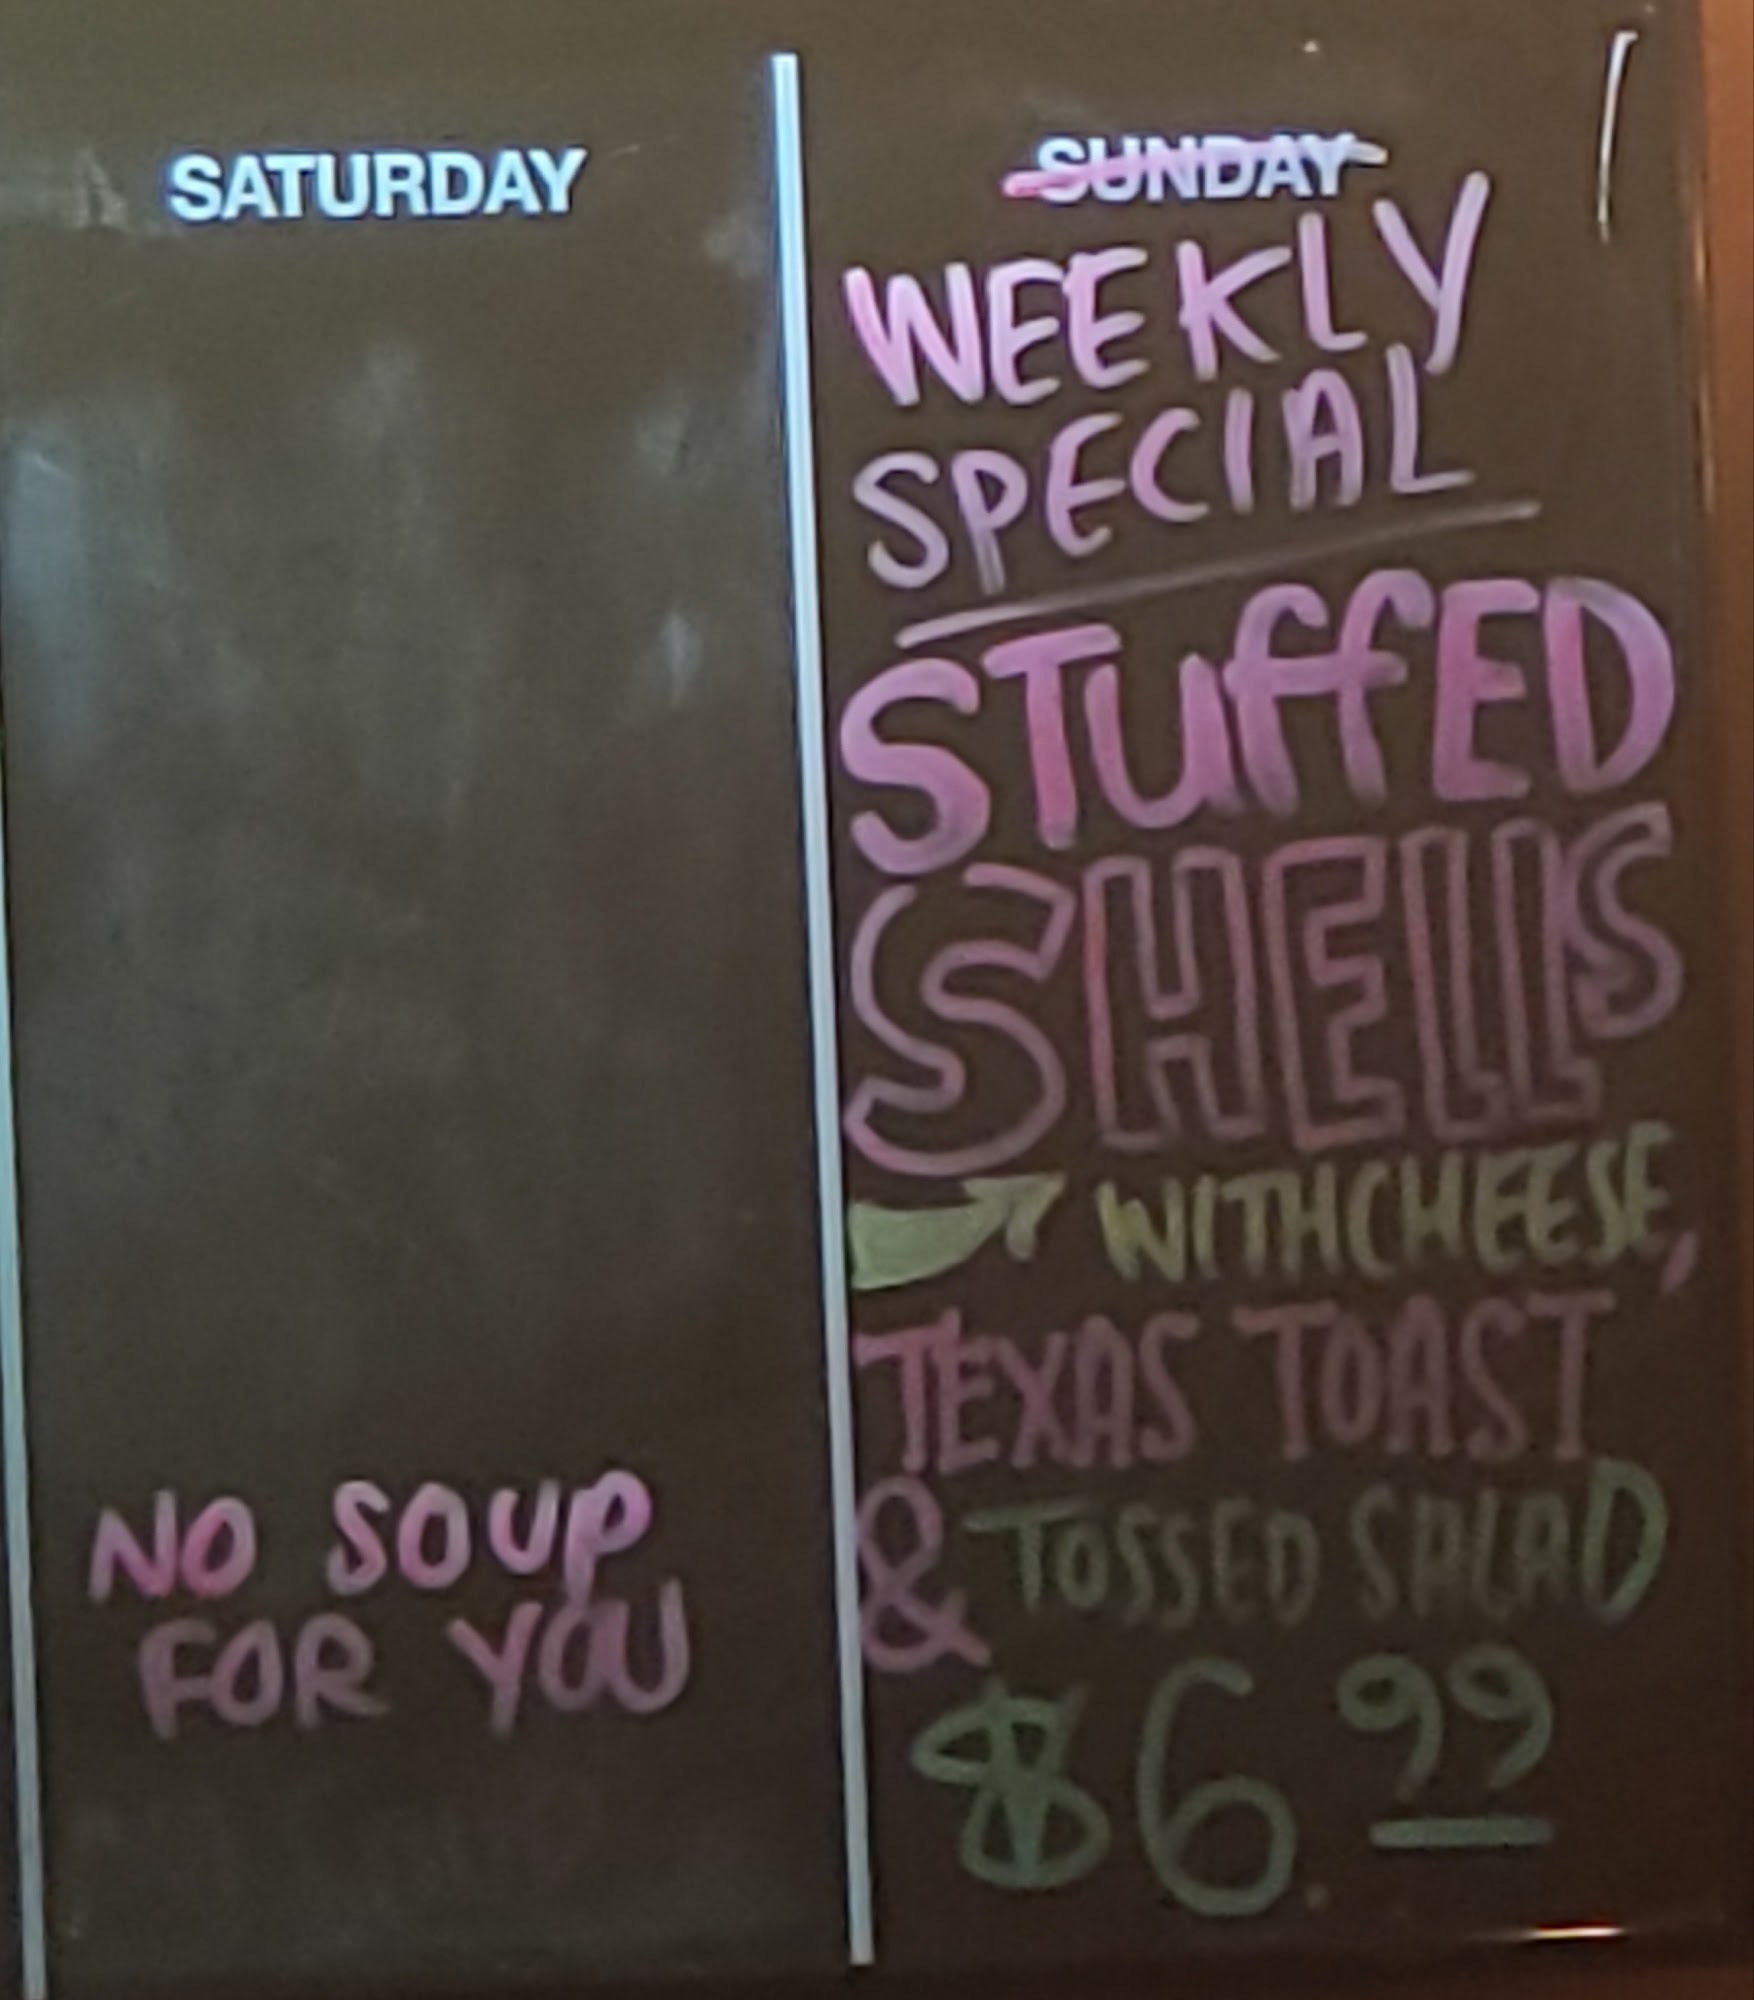 SATURDAY
NO SOUP
FOR YOU
SUNDAY
WEEKLY
SPECIAL
STUFFED
SHELLS
WITH CHEESE,
TEXAS TOAST
& TOSSED SALAD
$6.99